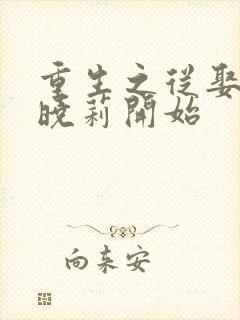 重生之從娶
曉莉開始
向來安